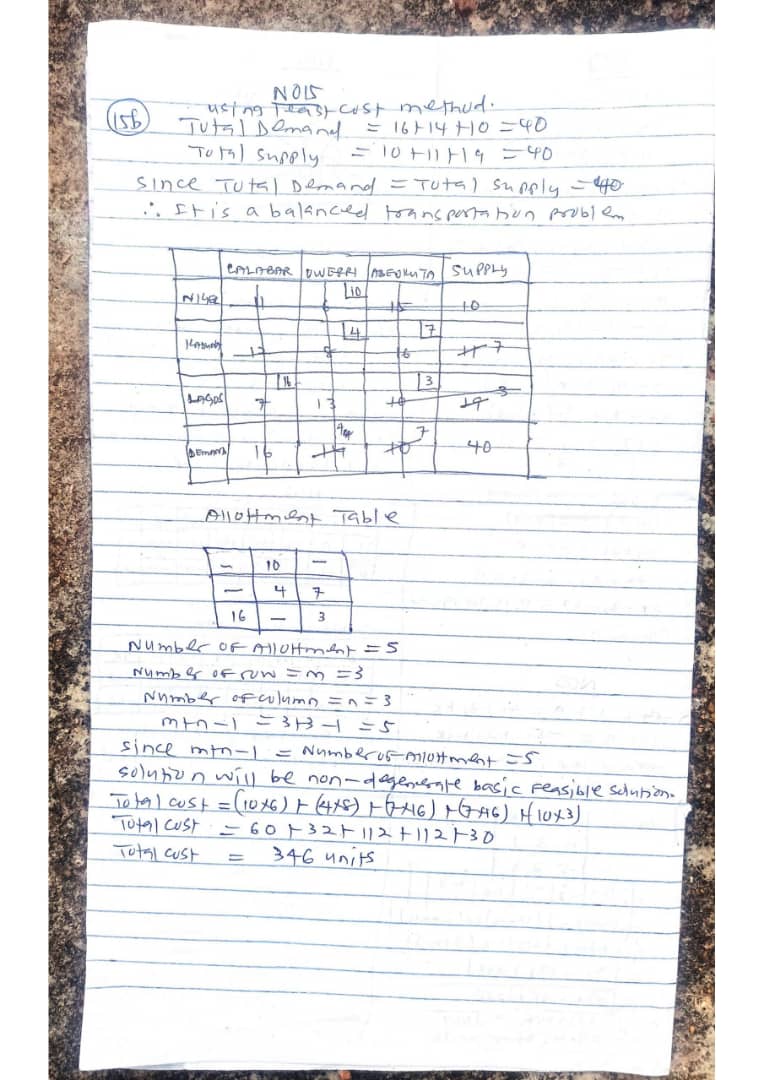 NO15
15b using Least cost method.
Total Demand = 16+14+10 = 40
Total supply = 10+11+19 = 40
since Total Demand = Total supply = 40
∴ It is a balanced transportation problem
CALABAR OWERRI ABEOKUTA SUPPLY
NIGER 11 6 10 15 10
KADUNA 12 8 4 16 7 11 7
LAGOS 7 16 13 10 3 19 3
DEMAND 16 14 4 10 7 40
Allottment Table
– 10 –
– 4 7
16 – 3
Number of Allottment = 5
Number of row = m = 3
Number of column = n = 3
m+n-1 = 3+3-1 = 5
since m+n-1 = Number of Allottment = 5
solution will be non-degenerate basic feasible solution.
Total cost = (10x6) + (4x8) + (7x16) + (7x16) + (10x3)
Total cost = 60+32+112+112+30
Total cost = 346 units